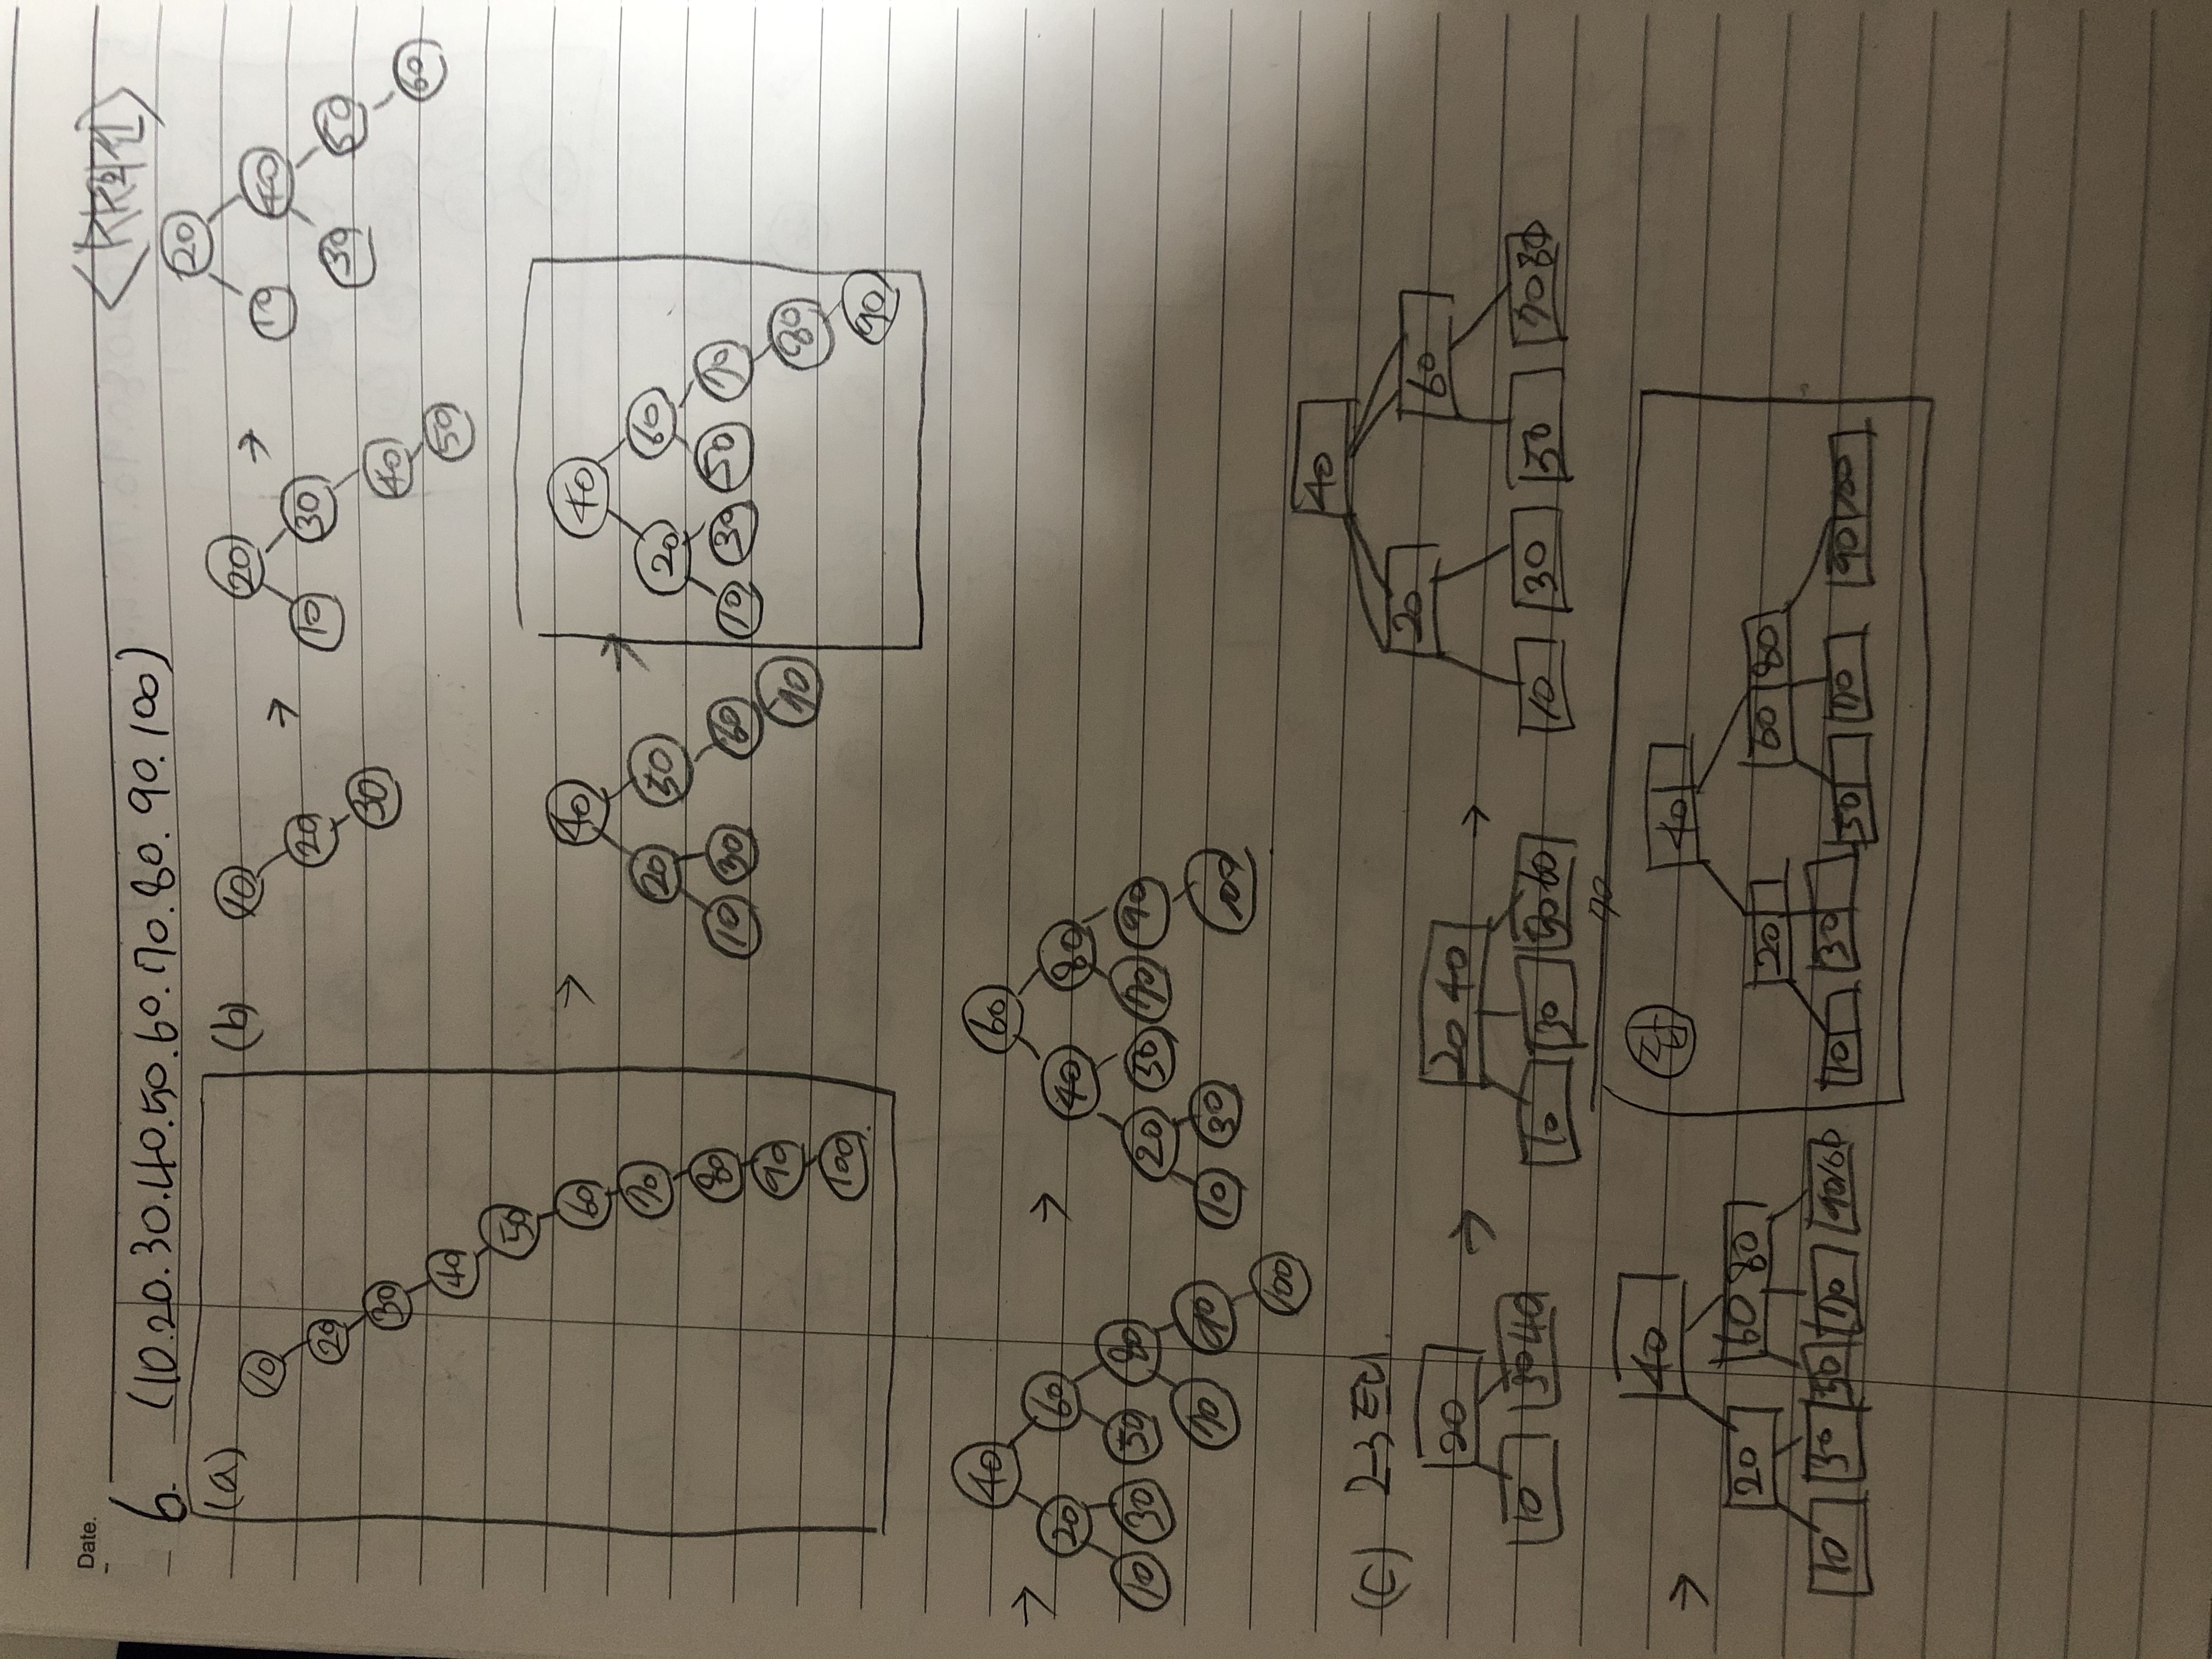 Date.
6. (10.20.30.40.50.60.70.80.90.100)
(a)
10
20
30
40
50
60
70
80
90
100
(b)
10
20
30
→
20
10 30
40
50
→
20
10 40
30 50
60
→
40
20 50
10 30 60
70
→
40
20 60
10 30 50 70
80
90
→
40
20 60
10 30 50 80
70 90
100
→
60
40 80
20 50 70 90
10 30 100
(C) 2-3 트리.
20
10 30 40
→
20 40
10 30 50 60
70
→
40
20 60
10 30 50 70 80
→
40
20 60 80
10 30 50 70 90 100
답
40
20 60 80
10 30 50 70 90 100